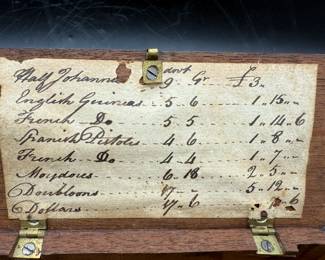 Half Johannes dwt 9 Gr £3
English Guineas 5 6 1 15
French Do 5 5 1 14 6
Spanish Pistoles 4 6 1 8
French Do 4 4 1 7
Moydores 6 18 2 5
Doubloons 17 5 12
Dollars 17 6 6